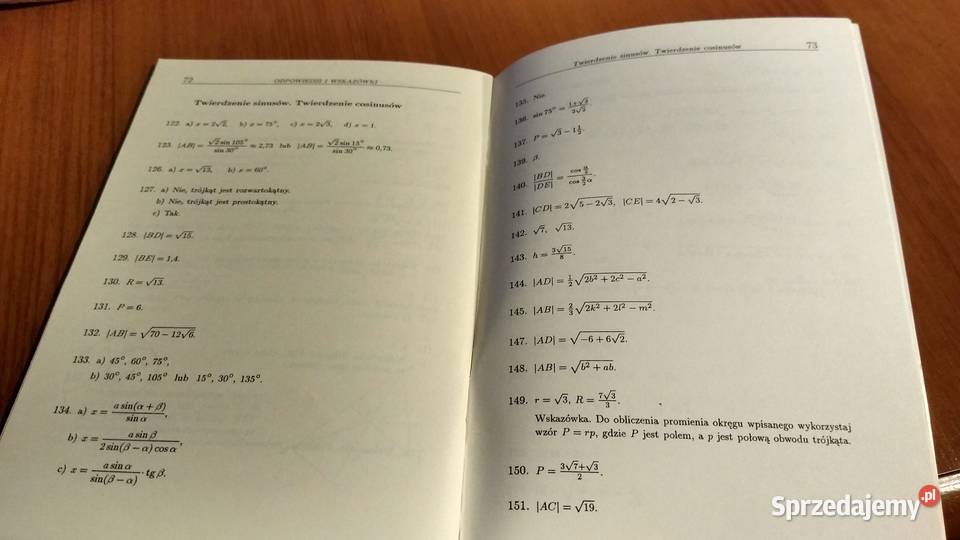 72 ODPOWIEDZI I WSKAZÓWKI
Twierdzenie sinusów. Twierdzenie cosinusów
122. a) x = 2√2, b) x = 75°, c) x = 2√3, d) x = 1.
123. |AB| = √2 sin 105° / sin 30° ≈ 2,73 lub |AB| = √2 sin 15° / sin 30° ≈ 0,73.
126. a) x = √13, b) x = 60°.
127. a) Nie, trójkąt jest rozwartokątny.
b) Nie, trójkąt jest prostokątny.
c) Tak.
128. |BD| = √15.
129. |BE| = 1,4.
130. R = √13.
131. P = 6.
132. |AB| = √(70 − 12√6).
133. a) 45°, 60°, 75°,
b) 30°, 45°, 105° lub 15°, 30°, 135°.
134. a) x = a sin(α + β) / sin α,
b) x = a sin β / 2 sin(β − α) cos α,
c) x = a sin α / sin(β − α) · tg β.
Twierdzenie sinusów. Twierdzenie cosinusów 73
135. Nie.
136. sin 75° = (1+√3) / 2√2.
137. P = √3 − 1½.
139. β.
140. |BD| / |DE| = cos α/2 / cos 3/2 α
141. |CD| = 2√(5 − 2√3), |CE| = 4√(2 − √3).
142. √7, √13.
143. h = 3√15 / 8.
144. |AD| = ½√(2b² + 2c² − a²).
145. |AB| = ⅔√(2k² + 2l² − m²).
147. |AD| = √(−6 + 6√2).
148. |AB| = √(b² + ab).
149. r = √3, R = 7√3 / 3.
Wskazówka. Do obliczenia promienia okręgu wpisanego wykorzystaj
wzór P = rp, gdzie P jest polem, a p jest połową obwodu trójkąta.
150. P = (3√7+√3) / 2.
151. |AC| = √19.
Sprzedajemy.pl